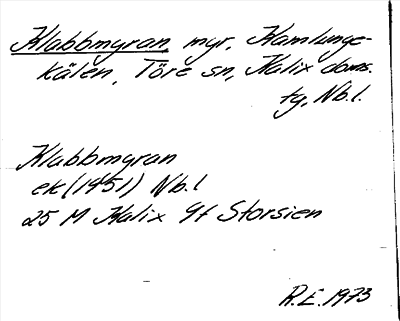 Klabbmyran, myr, Kamlunge-
kälen, Töre sn, Kalix doms.
tg, Nb.l.
Klabbmyran
ek (1951) Nb.l
25 M Kalix 9f Storsien
R.E. 1973